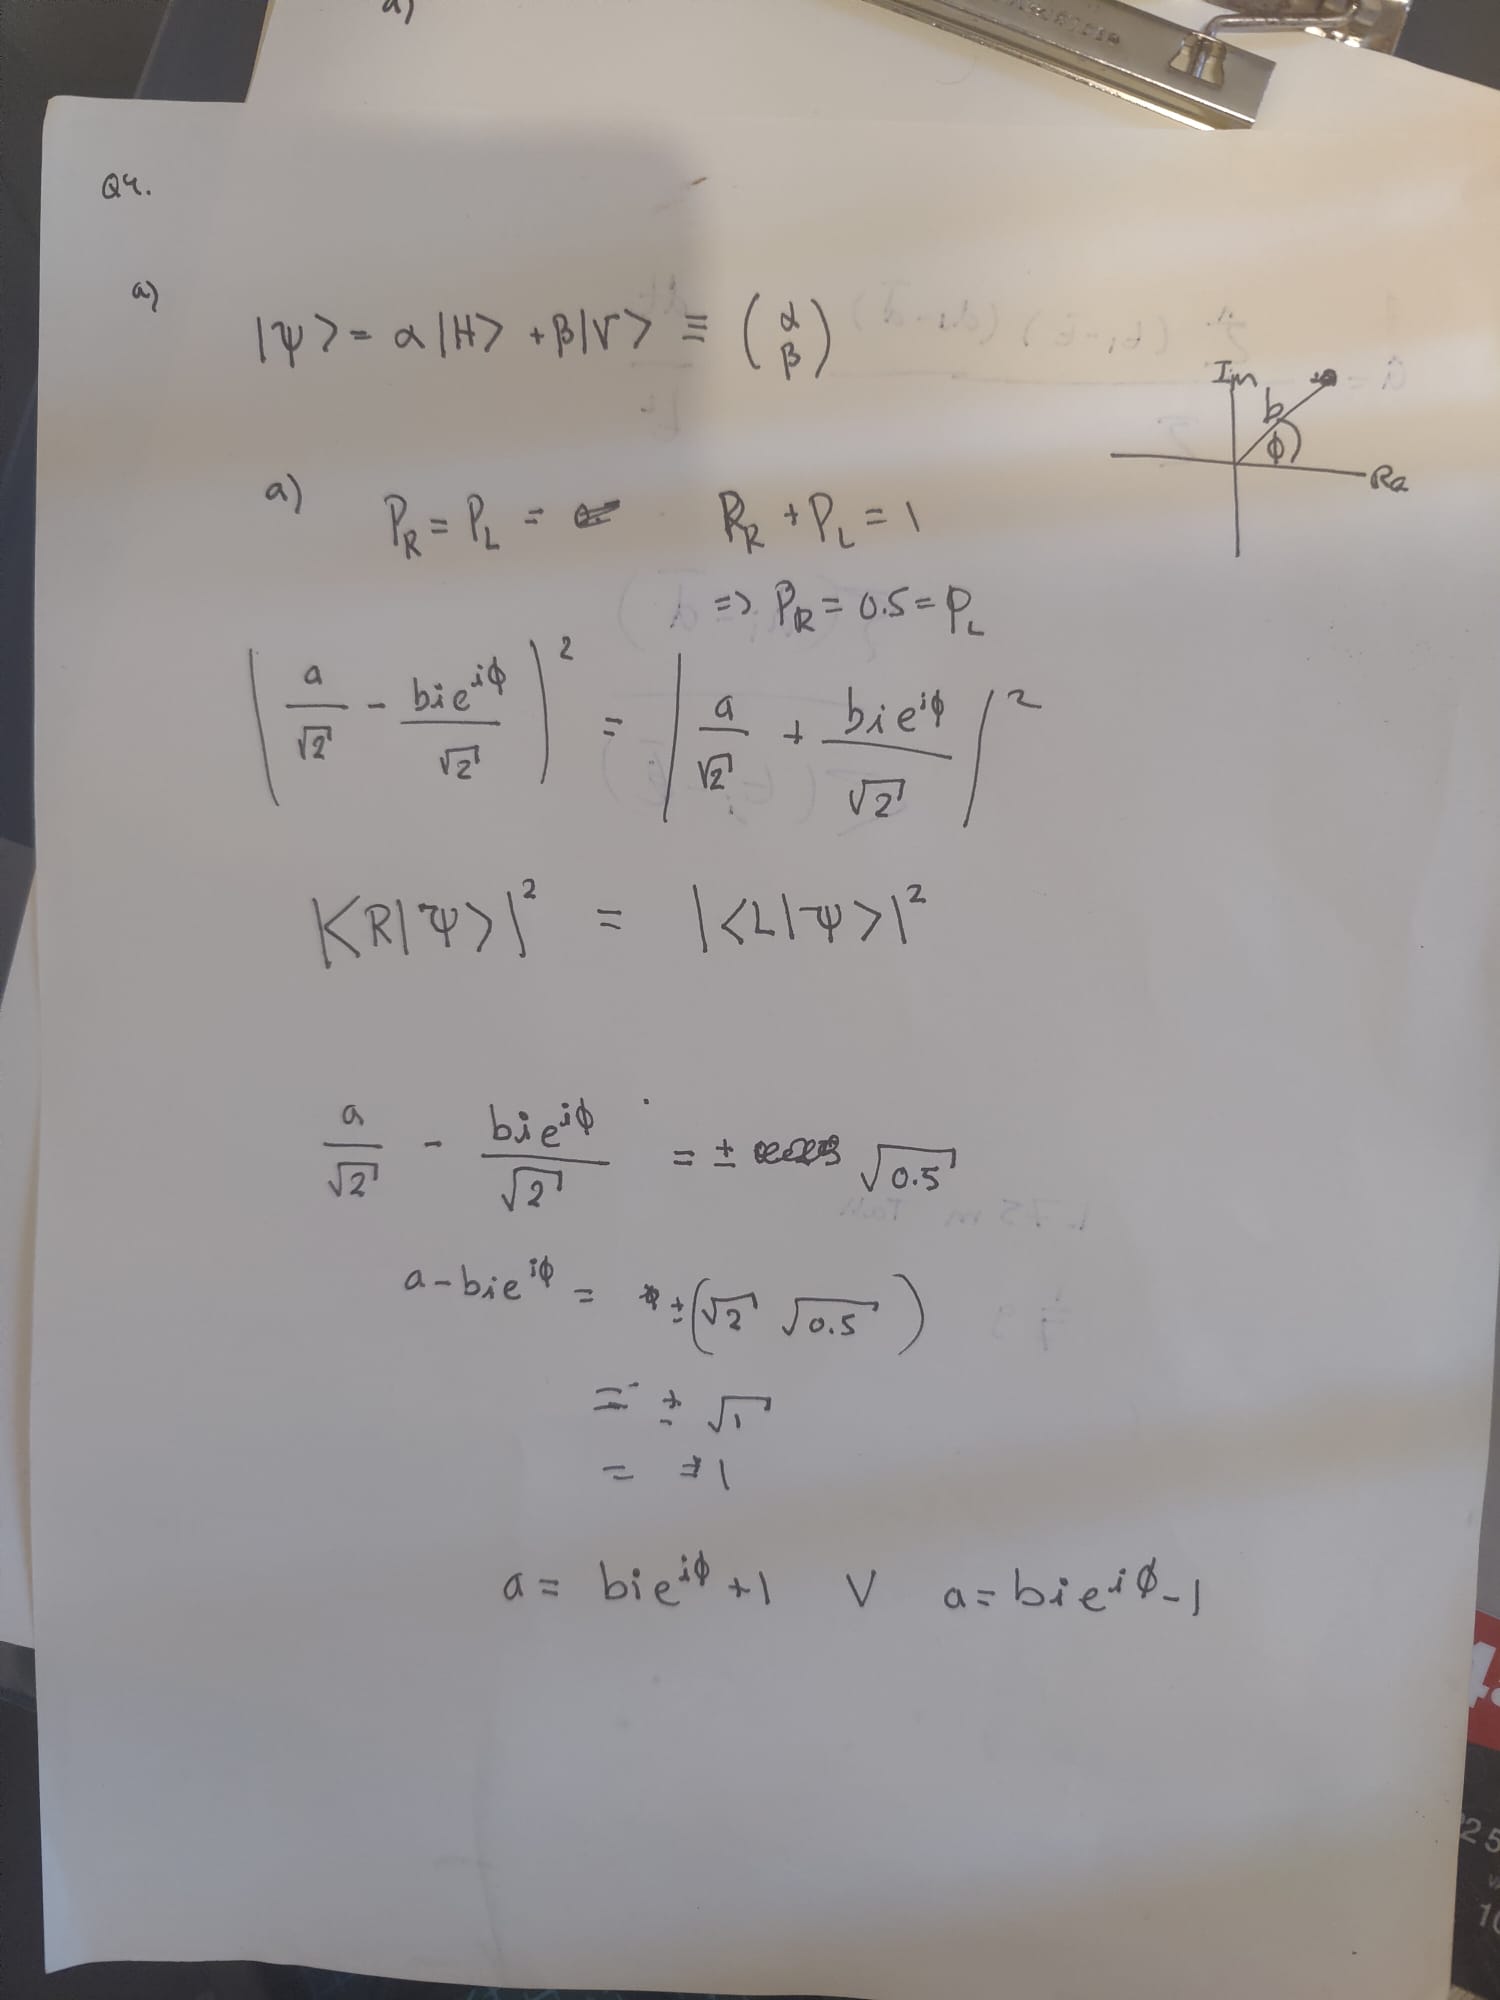 a)
Q4.
a)
|ψ> = α|H> + β|V> ≡ (α β)
Im
b
ϕ
Re
a) P_R = P_L = P_R + P_L = 1
=> P_R = 0.5 = P_L
| a/√2 - bie^{iϕ}/√2 |² = | a/√2 + bie^{iϕ}/√2 |²
|<R|ψ>|² = |<L|ψ>|²
a/√2 - bie^{iϕ}/√2 = ± √0.5
a - bie^{iϕ} = ±(√2 √0.5)
= ± √1
= ±1
a = bie^{iϕ} + 1 V a = bie^{iϕ} - 1